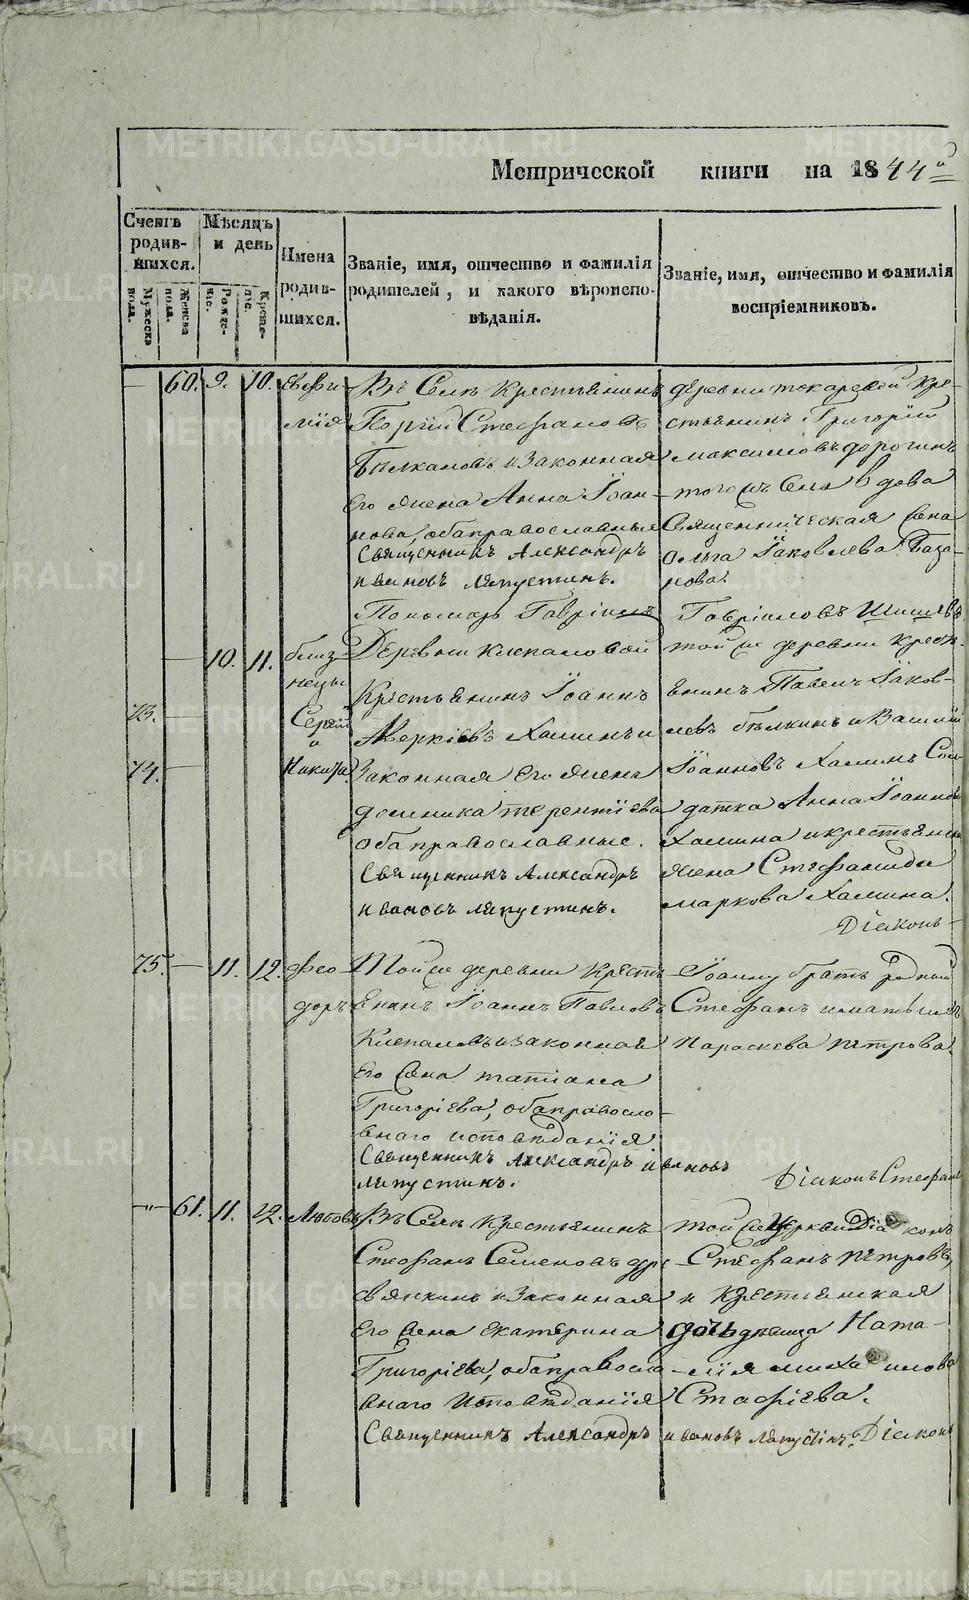 Метрической книги на 1844й
Счетъ родив-шихся.
Мужеска пола.
Женска пола.
Мѣсяцъ и день
Рожде-ніе.
Креще-ніе.
Имена родив-шихся.
Званіе, имя, отчество и фамилія
родителей, и какого вѣроиспо-
вѣданія.
Званіе, имя, отчество и фамилія
воспріемниковъ.
60. 9. 10. Евфи
мія
Въ Селѣ Крестьянинъ
Стефановъ
и законная
Его жена Анна Іоан-
нова, оба православные
Священникъ Александръ
Ивановъ Ляпустинъ.
Пономарь Гавріилъ
деревни токаревой кре-
стьянинъ Григорій
Максимовъ дорогинъ
того съ Села вдова
Священническая жена
Ольга Іаковлева База-
нова.
Гавріиловъ
10. 11. близ
нецы
73. Сергій
и
74. Никита
Деревни Клепаловой
Крестьянинъ Іоаннъ
Аверкіевъ Халинъ и
Законная Его жена
домника терентіева
оба православные.
Священникъ Александръ
Ивановъ Ляпустинъ.
той же деревни Крест-
янинъ Павелъ Іаков-
левъ бѣлкинъ и Василій
Іоанновъ Халинъ Сол-
датка Анна Іоаннова
Халина и крестьянска
жена Стефанида
маркова Халина.
Діаконъ
75. 11. 12. Фео
доръ
Той же деревни Крестъ
Енинъ Іоаннъ Павловъ
Клепаловъ и законная
Его жена татіана
Григоріева, оба правосло-
внаго исповѣданія
Священникъ Александръ Ивановъ
Ляпустинъ.
Іоанну братъ родный
Стефанъ и мать ихъ
Параскева Петрова.
Діаконъ Стефанъ
61. 11. 22. Любовь
Въ Селѣ Крестьянинъ
Стефанъ Семеновъ дре-
свянкинъ и Законная
Его жена Екатерина
Григоріева, оба правосла
внаго исповѣданія
Священникъ Александръ
той же Церкви Діаконъ
Стефанъ Петровъ,
и Крестьянская
дочь дѣвица Ната-
лія михаилова
Стафіева.
Ивановъ Ляпустинъ. Діаконъ
METRIKI.GASO-URAL.RU